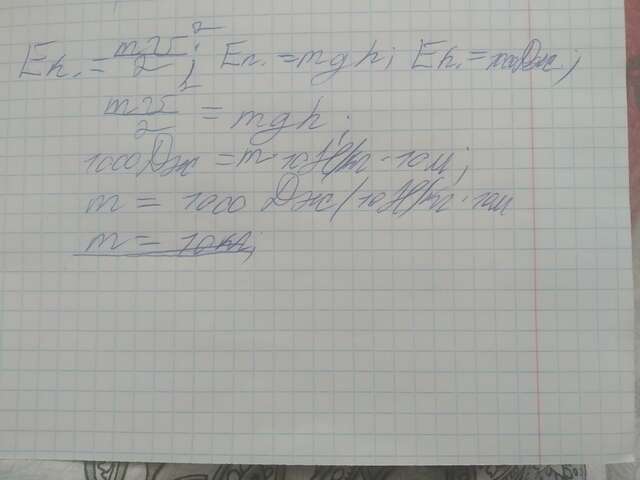 Eк. = mv²/2; Eп. = mgh; Eк. = 1000Дж.;
mv²/2 = mgh;
1000Дж = m 10Н/кг · 10м;
m = 1000 Дж/10Н/кг · 10м
m = 10кг;